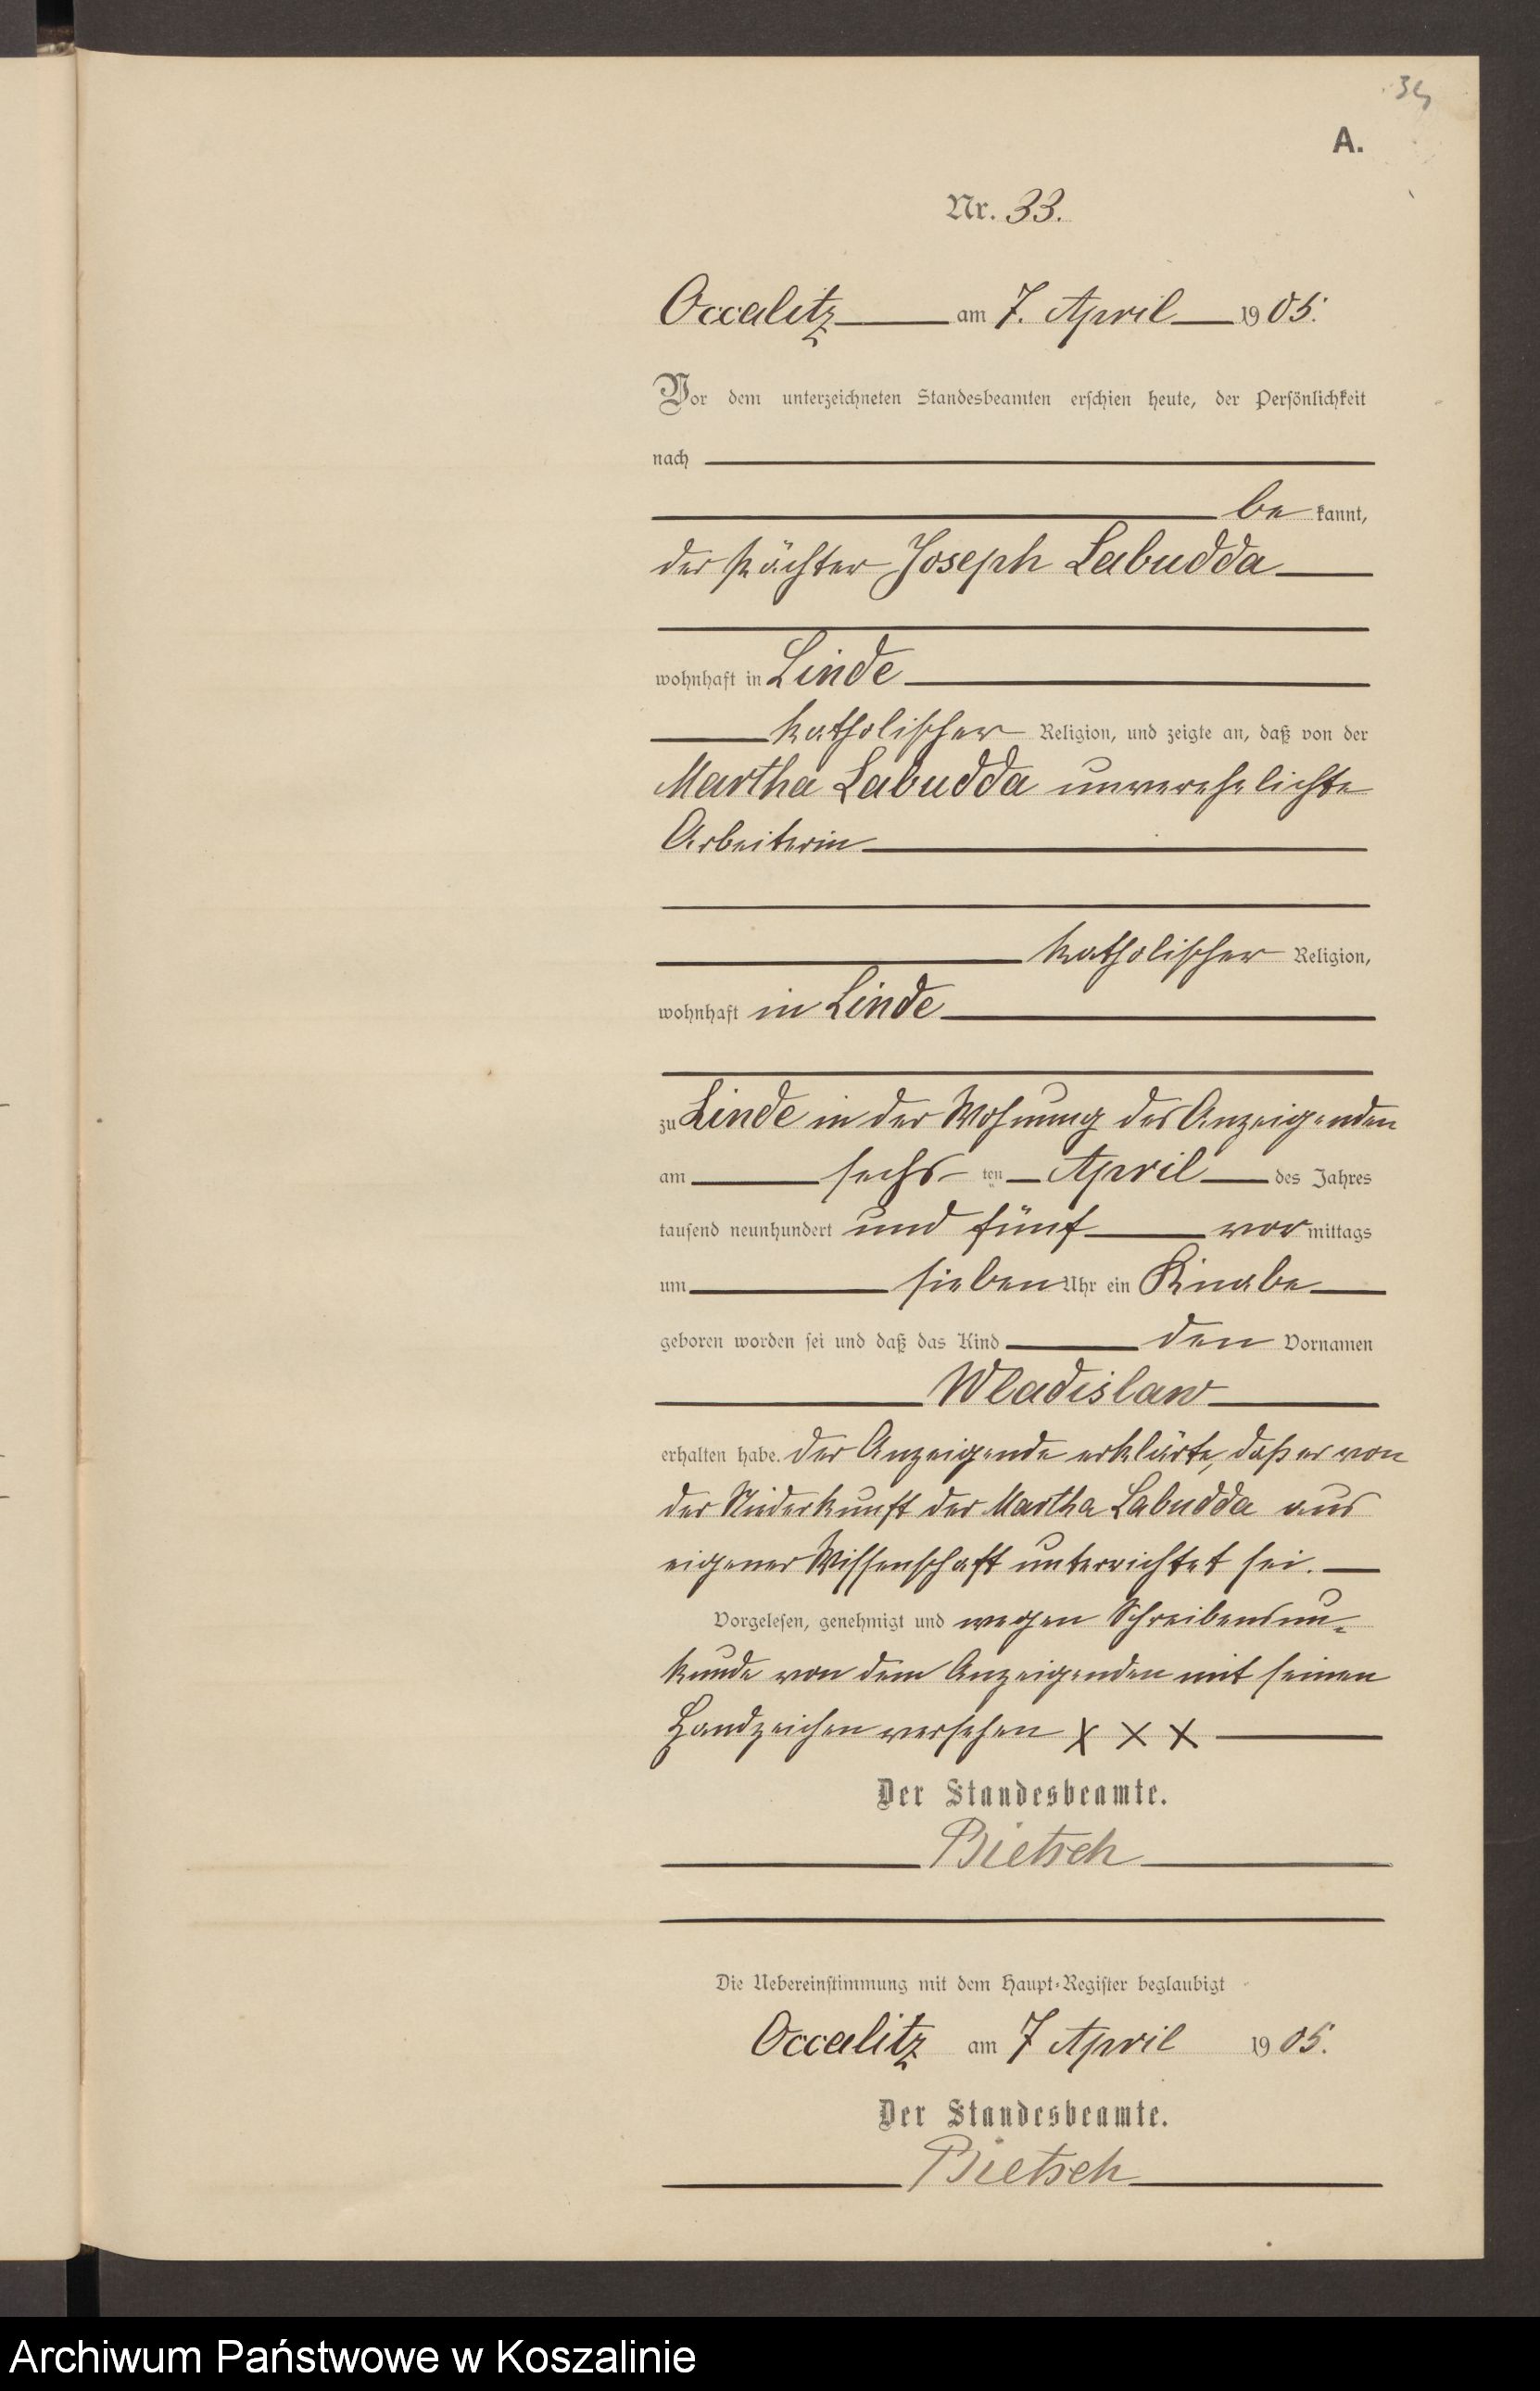 34
A.
Nr. 33.
Occalitz am 7. April 1905.
Vor dem unterzeichneten Standesbeamten erschien heute, der Persönlichkeit
nach
be kannt,
der Pächter Joseph Labudda
wohnhaft in Linde
katholischer Religion, und zeigte an, daß von der
Martha Labudda unverehelichte
Arbeiterin
katholischer Religion,
wohnhaft in Linde
zu Linde in der Wohnung des Anzeigenden
am sechs ten April des Jahres
tausend neunhundert und fünf vor mittags
um sieben Uhr ein Knabe
geboren worden sei und daß das Kind den Vornamen
Wladislaw
erhalten habe. Der Anzeigende erklärte, daß er von
der Niederkunft der Martha Labudda aus
eigener Wissenschaft unterrichtet sei.
Vorgelesen, genehmigt und wegen Schreibensun-
kunde von dem Anzeigenden mit seinen
Handzeichen versehen X X X
Der Standesbeamte.
Bietsch
Die Uebereinstimmung mit dem Haupt-Register beglaubigt
Occalitz am 7 April 1905.
Der Standesbeamte.
Bietsch
Archiwum Państwowe w Koszalinie